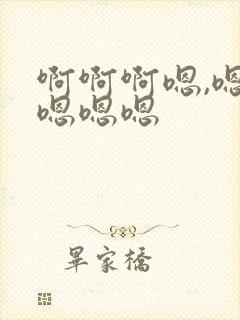 啊啊啊嗯,嗯
嗯嗯嗯
畢家橋